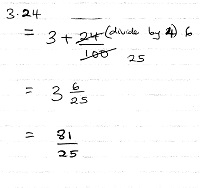 3.24
= 3 + 24/100 (divide by 4) 6
25
= 3 6/25
= 81/25